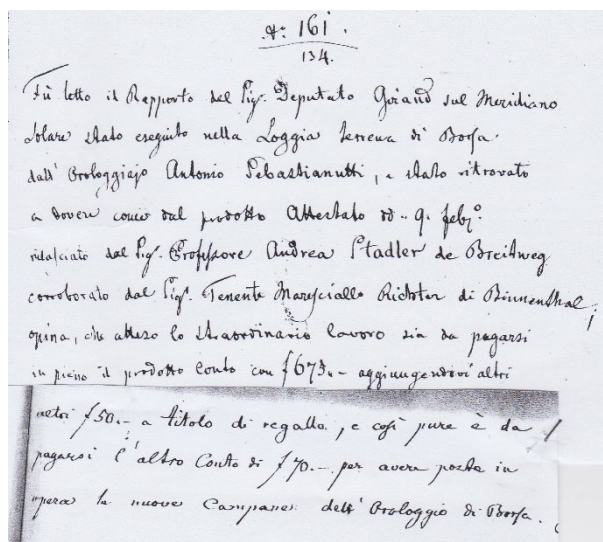 N.º 161.
134.
Fù letto il Rapporto del Sig.r Deputato Goiand sul Meridiano
Solare stato eseguito nella Loggia terrena di Borsa
dall' Orologgiajo Antonio Sebastianutti, e stato ritrovato
a dovere come dal prodotto Attestato dd.º 9. febj.º
rilasciato dal Sig.r Professore Andrea Stadler de Breitweg
corroborato dal Sig.r Tenente Maresciallo Richter di Binnenthal,
opina, che atteso lo straordinario lavoro sia da pagarsi
in pieno il prodotto Conto con f 673.- aggiungendovi altri
altri f 50.- a titolo di regallo, e così pure è da
pagarsi l'altro Conto di f 70.- per avere posta in
opera le nuove Campane dell' Orologgio di Borsa.